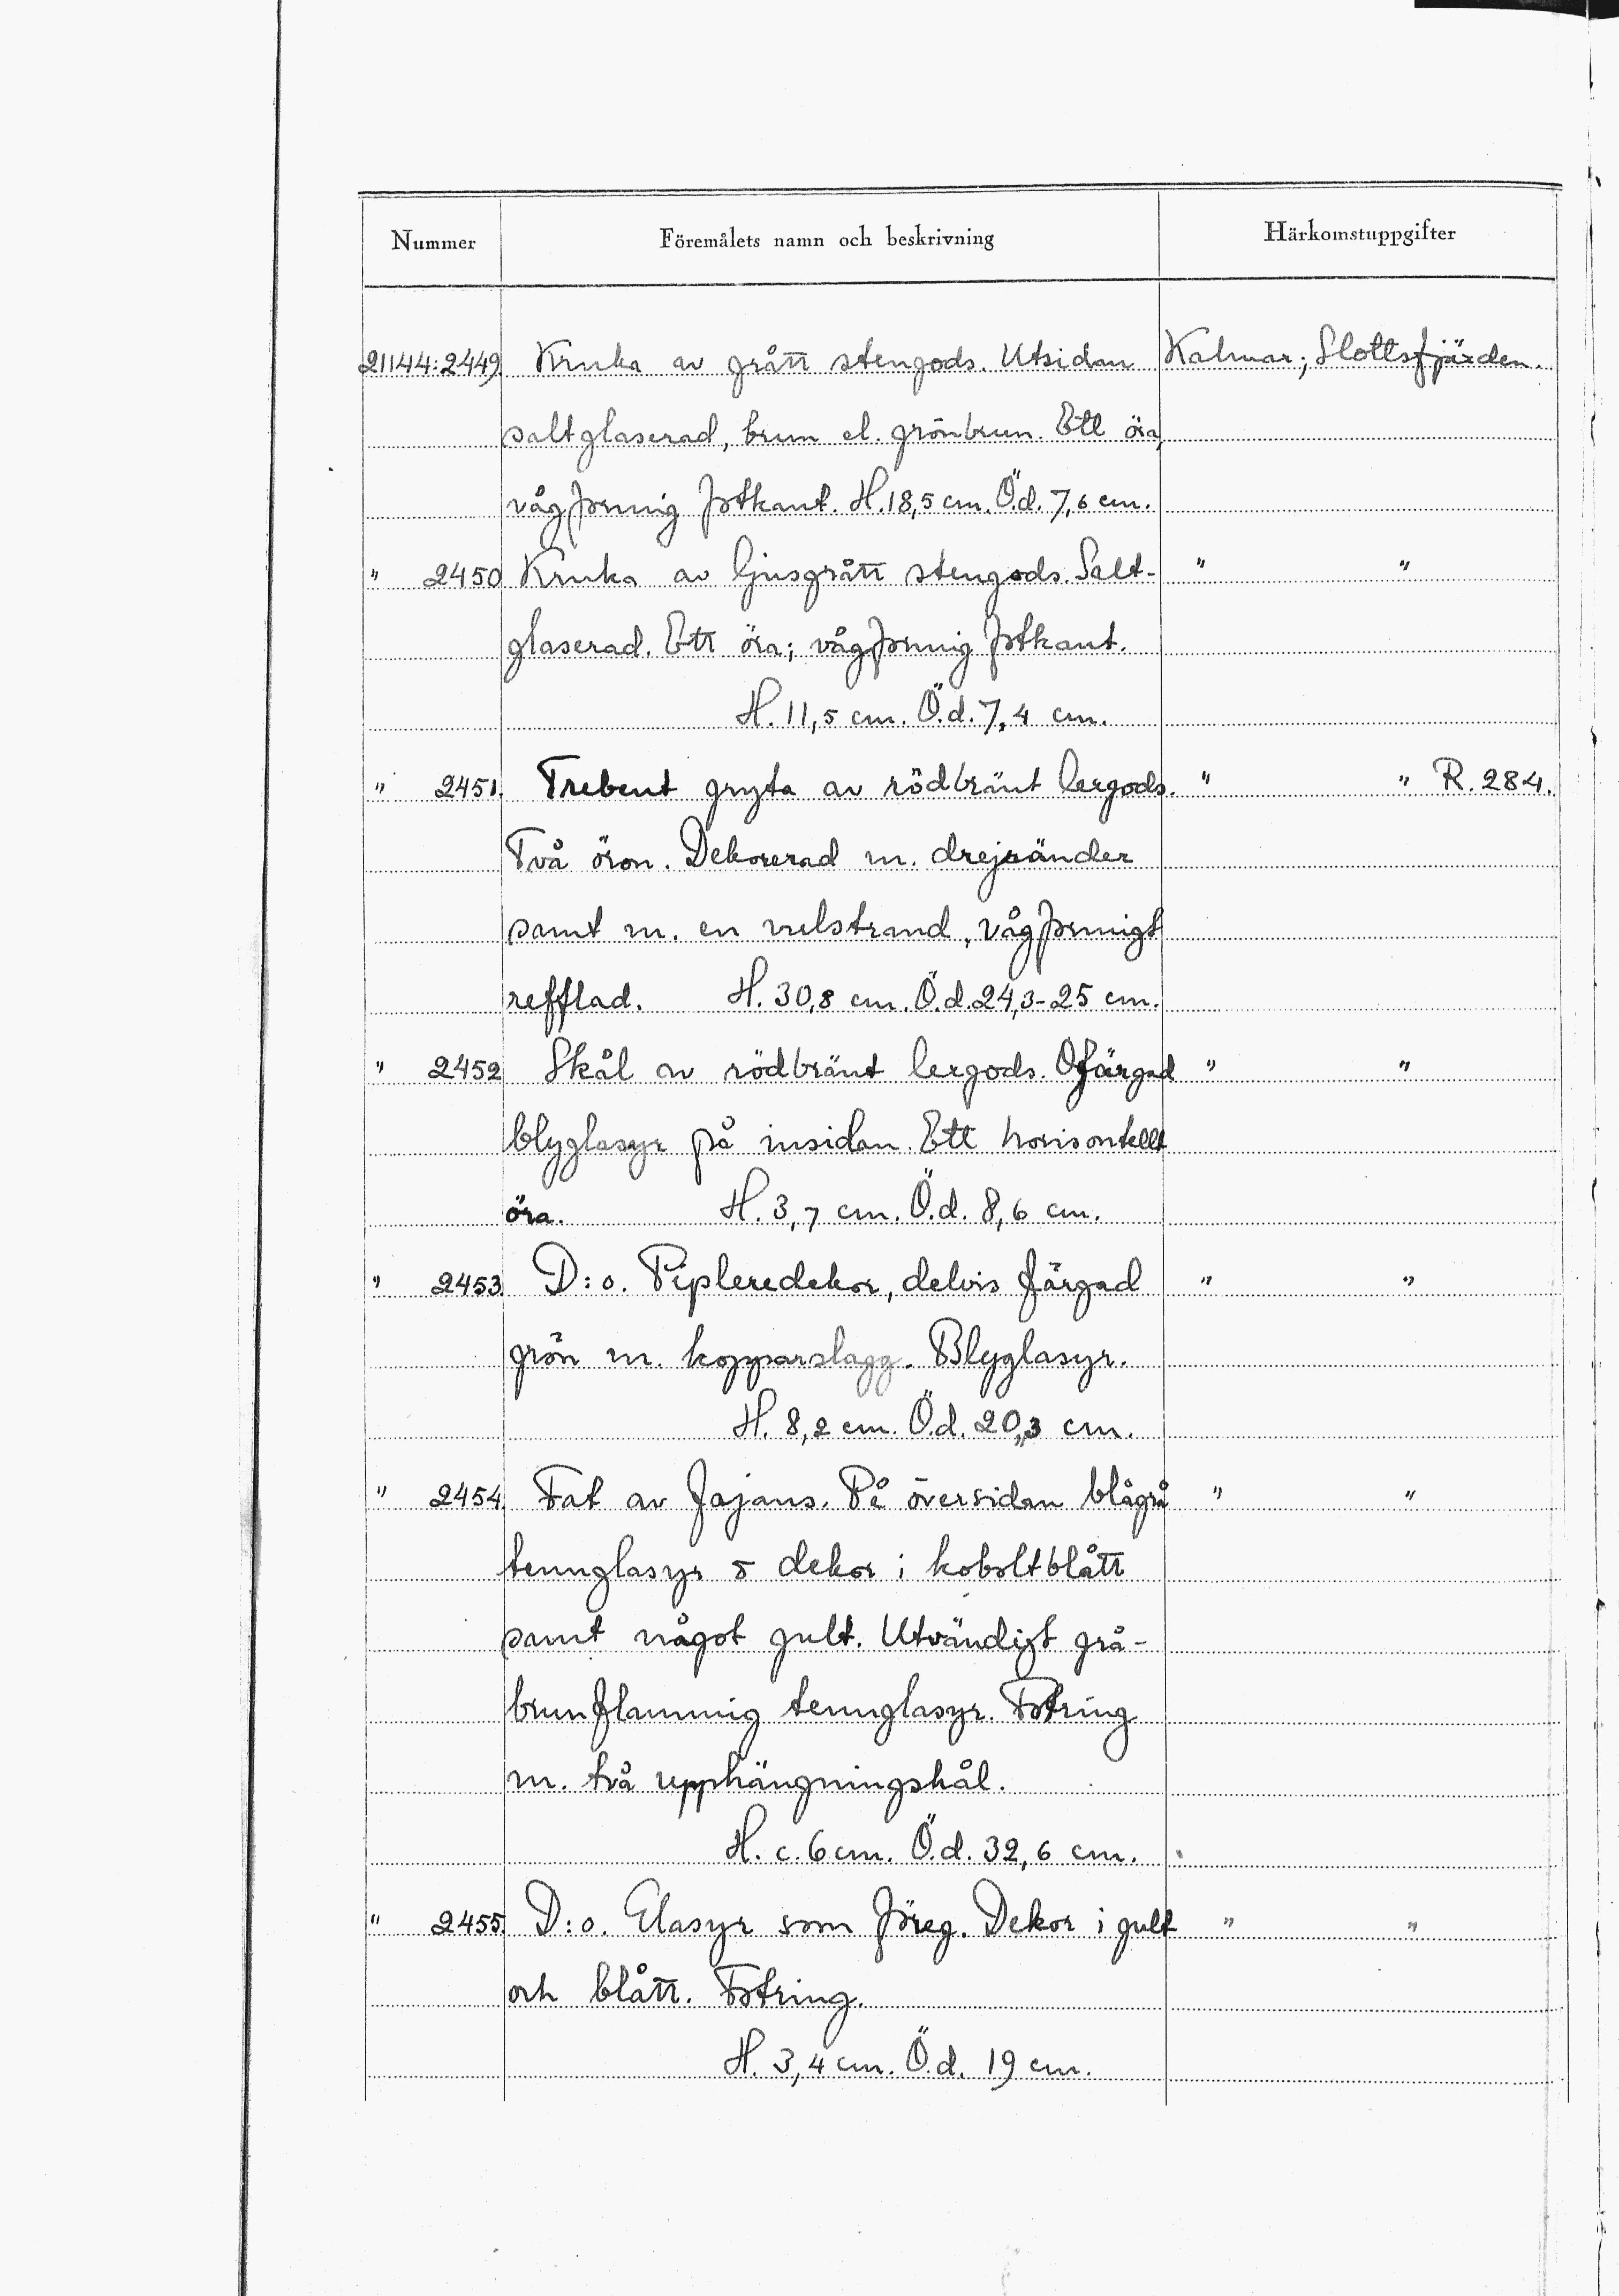 Nummer Föremålets namn och beskrivning Härkomstuppgifter
21144:2449. Kruka av grått stengods. Utsidan Kalmar; Slottsfjärden.
saltglaserad, brun el. grönbrun. Ett öra,
vågformig fotkant. H. 18,5 cm. Ö.d. 7,6 cm.
" 2450 Kruka av ljusgrått stengods. Salt- " "
glaserad. Ett öra; vågformig fotkant.
H. 11,5 cm. Ö.d. 7,4 cm.
" 2451. Trebent gryta av rödbränt lergods. " " R. 284.
Två öron. Dekorerad m. drejränder
samt m. en vulstrand, vågformigt
refflad. H. 30,8 cm. Ö.d. 24,3-25 cm.
" 2452 Skål av rödbränt lergods. Ofärgad " "
blyglasyr på insidan. Ett horisontellt
öra. H. 3,7 cm. Ö.d. 8,6 cm.
" 2453. D:o. Pipleredekor, delvis färgad " "
grön m. kopparslagg. Blyglasyr.
H. 8,2 cm. Ö.d. 20,3 cm.
" 2454. Fat av fajans. På översidan blågrå " "
tennglasyr o dekor i koboltblått
samt något gult. Utvändigt grå-
brunflammig tennglasyr. Fotring
m. två upphängningshål.
H. c. 6 cm. Ö.d. 32,6 cm.
" 2455. D:o. Glasyr som föreg. Dekor i gult " "
och blått. Fotring.
H. 3,4 cm. Ö.d. 19 cm.